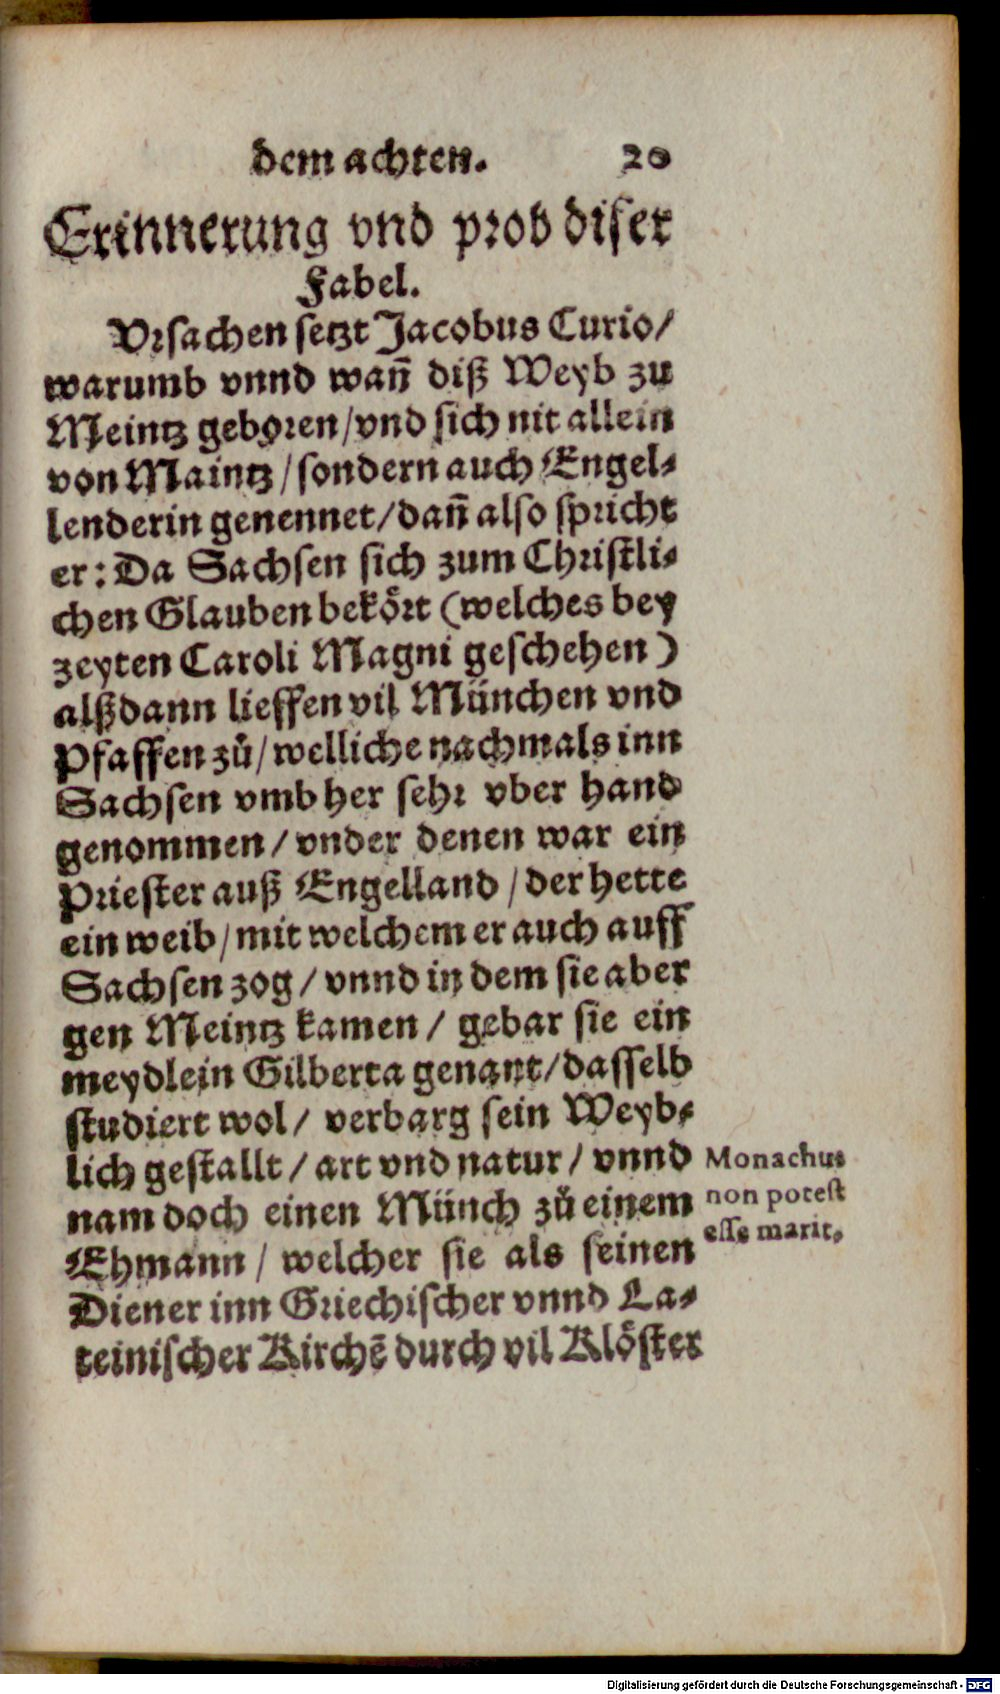 dem achten. 20
Erinnerung vnd prob diser
Fabel.
Vrsachen setzt Jacobus Curio/
warumb vnnd wañ diß Weyb zu
Meintz geboren/vnd sich nit allein
von Maintz/sondern auch Engel-
lenderin genennet/dañ also spricht
er: Da Sachsen sich zum Christli-
chen Glauben bekört (welches bey
zeyten Caroli Magni geschehen)
alßdann lieffen vil München vnd
Pfaffen zů/welliche nachmals inn
Sachsen vmb her sehr vber hand
genommen/vnder denen war ein
Priester auß Engelland/der hette
ein weib/mit welchem er auch auff
Sachsen zog/vnnd in dem sie aber
gen Meintz kamen/ gebar sie ein
meydlein Gilberta genant/dasselb
studiert wol/ verbarg sein Weyb-
lich gestallt/art vnd natur/vnnd
nam doch einen Münch zů einem
Ehmann/ welcher sie als seinen
Diener inn Griechischer vnnd La-
teinischer Kirchē durch vil Klöster
Monachus
non potest
esse marit,
Digitalisierung gefördert durch die Deutsche Forschungsgemeinschaft - DFG